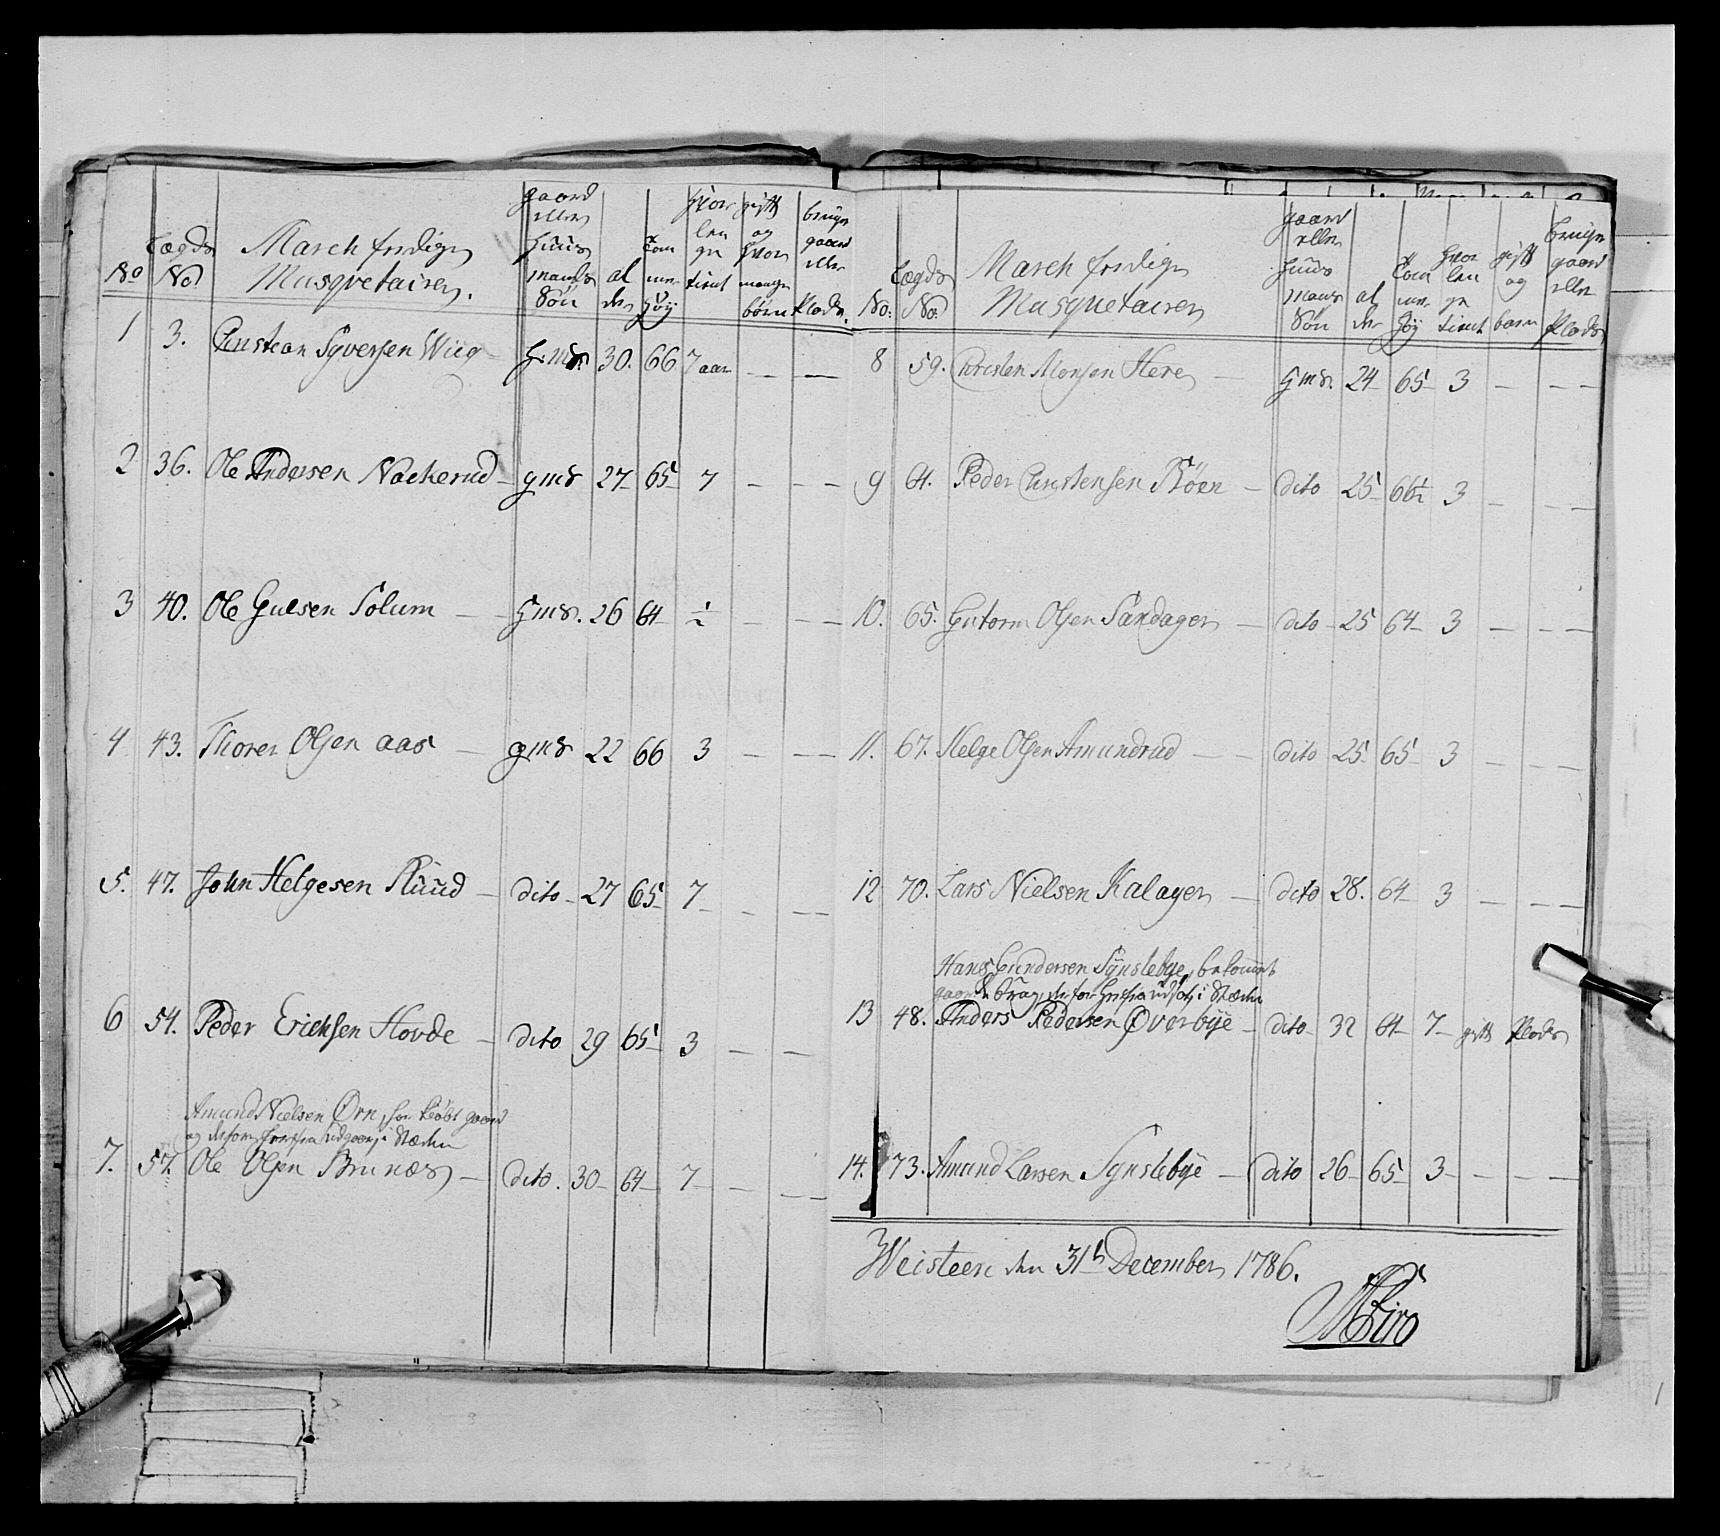 No
Lægds No
March færdige Musqvetairer.
gaard eller Huus mands Søn
al der
Tom mer Høy
hvor læn ge tient
gift og hvor mange børn
bruger gaard eller Plads.
1 3. Christian Syversen Wiig H:ms. 30. 66 7 aar — —
2 36. Ole Andersen Nackerud — gms 27 65 7 — — —
3 40. Ole Gulsen Solum — — Hms. 26 64 ½ — — —
4 43. Thorer Olsen Aas — gms 22 66 3 — — —
5. 47. John Helgesen Ruud — dito — 27 65 7 — — —
6 54. Peder Erichsen Hovde — dito 29 65 3 — —
Amund Nielsen Ørn, har kiøbt gaard
og derfor herfra udgaar, i Stæden
7. 57. Ole Olsen Brunæs — dito. 30 — 64 — 7 — — —
No:
Lægds No:
March færdige Musqvetairer
gaard eller Huus mands Søn
al der
Tom mer Høy
hvor læn ge tient
gift og børn
bruger gaard eller Plads
8 59. Christen Monsen Here — Hms. 24 65 3 — — —
9 61. Peder Christensen Røen — dito 25 66½ 3 — — —
10. 65. Guttorm Olsen Sandager — dito — 25 64 3 — — —
11. 67. Helge Olsen Amundrud — — dito 25 65 3 — — —
12 70. Lars Nielsen Kalager — dito 28. 64 3 — — —
Hans Gundersen Synslebye, bekommet
gaard brug, derfor herfra udsat, i Stæden
13 48. Anders Pedersen Øverbye — dito 32 64 7 — gift Plads
14. 73. Amund Larsen Synslebye — dito 26 65 3 — — —
Weisteen den 31th December 1786.